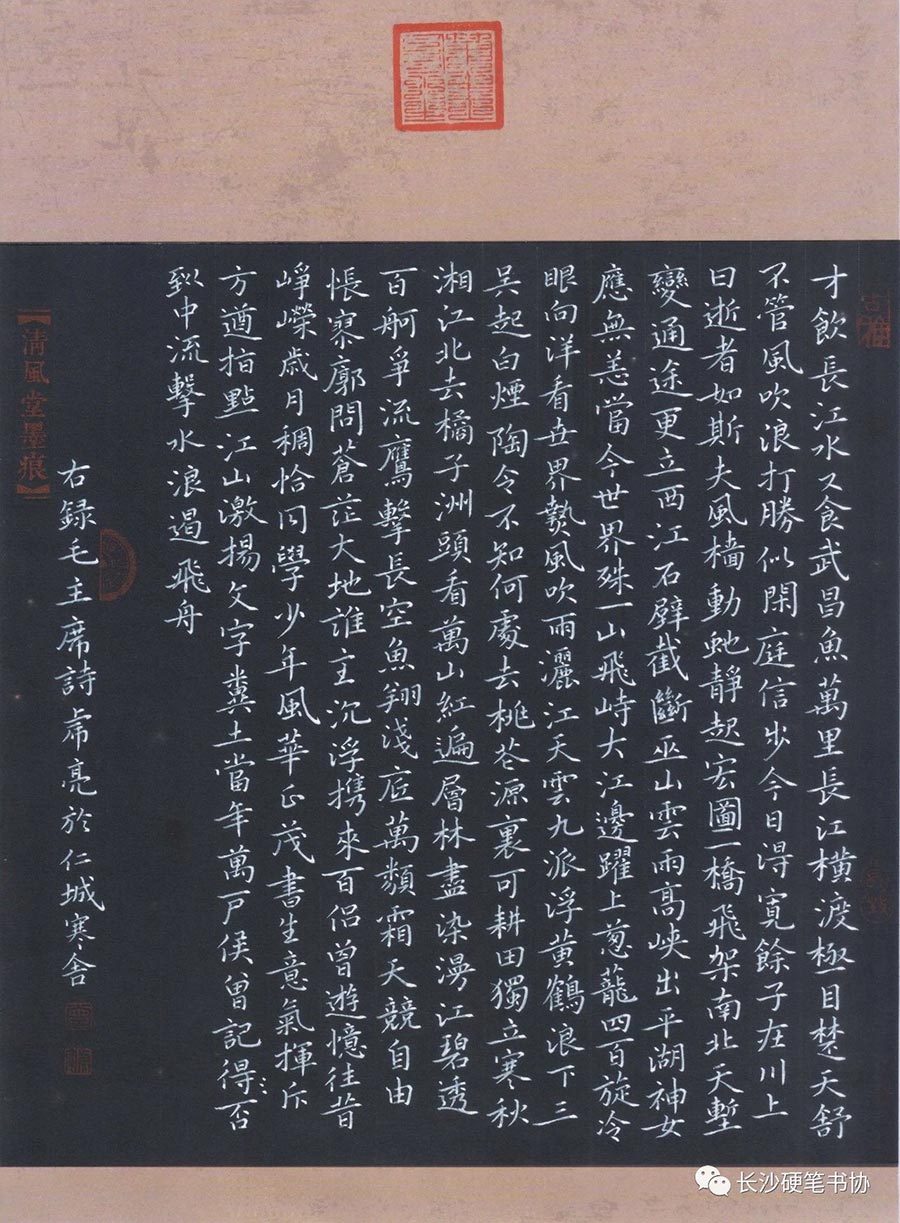 才飲長江水又食武昌魚萬里長江橫渡極目楚天舒
不管風吹浪打勝似閑庭信步今日得寬餘子在川上
曰逝者如斯夫風檣動虵靜起宏圖一橋飛架南北天塹
變通途更立西江石壁截斷巫山雲雨高峽出平湖神女
應無恙當今世界殊一山飛峙大江邊躍上蔥蘢四百旋冷
眼向洋看世界熱風吹雨灑江天雲九派浮黃鶴浪下三
吳起白煙陶令不知何處去桃花源裏可耕田獨立寒秋
湘江北去橘子洲頭看萬山紅遍層林盡染漫江碧透
百舸爭流鷹擊長空魚翔淺底萬類霜天競自由
悵寥廓問蒼茫大地誰主沉浮携來百侶曾遊憶往昔
崢嶸歲月稠恰同學少年風華正茂書生意氣揮斥
方遒指點江山激揚文字糞土當年萬戶侯曾記得否
到中流擊水浪遏飛舟
右録毛主席詩虎亮於仁城寒舍
【清風堂墨痕】
长沙硬笔书协